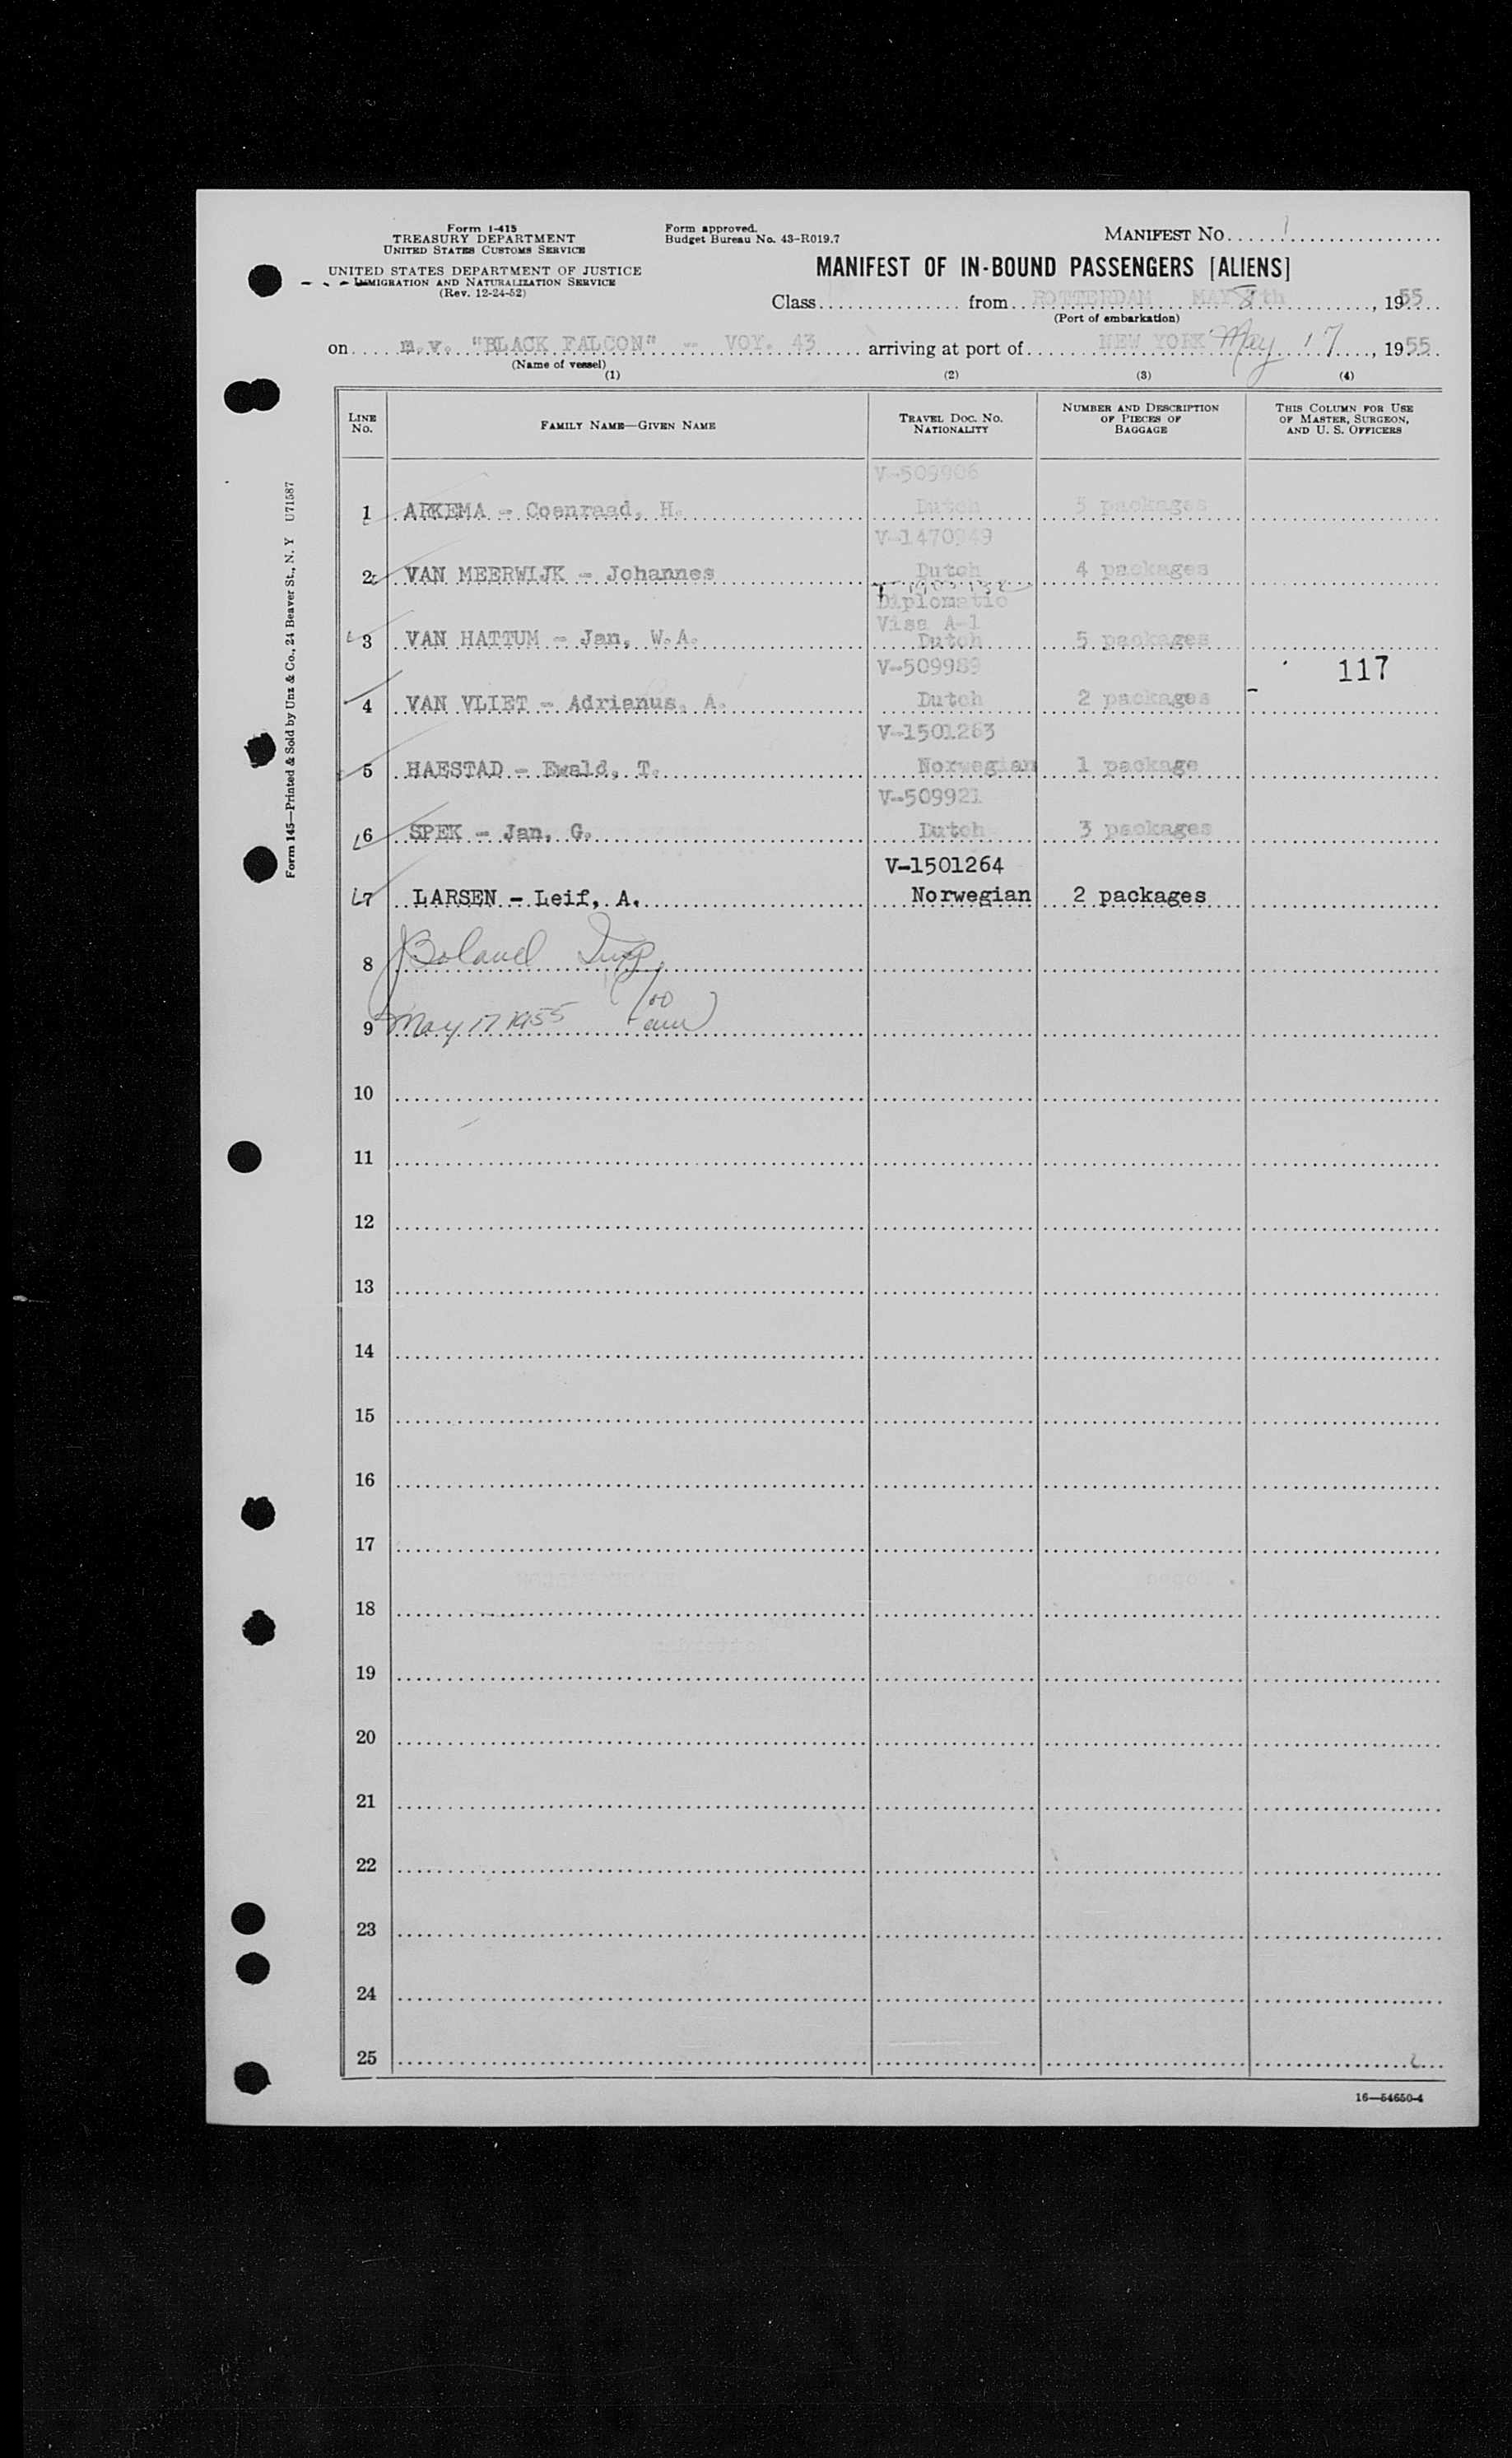 Form I-415
TREASURY DEPARTMENT
UNITED STATES CUSTOMS SERVICE
UNITED STATES DEPARTMENT OF JUSTICE
IMMIGRATION AND NATURALIZATION SERVICE
(Rev. 12-24-52)
Form approved.
Budget Bureau No. 43-R019.7
MANIFEST NO. 1
MANIFEST OF IN-BOUND PASSENGERS [ALIENS]
Class from ROTTERDAM MAY 8th, 1955
(Port of embarkation)
on m.v. "BLACK FALCON" - VOY. 43 arriving at port of NEW YORK May 17, 1955
(Name of vessel)
(1) (2) (3) (4)
LINE NO. FAMILY NAME—GIVEN NAME TRAVEL DOC. NO. NATIONALITY NUMBER AND DESCRIPTION OF PIECES OF BAGGAGE THIS COLUMN FOR USE OF MASTER, SURGEON, AND U. S. OFFICERS
V-509906
1 ARKEMA - Coenraad, H. Dutch 5 packages
V-1470949
2 VAN MEERWIJK - Johannes Dutch 4 packages
Diplomatic
Visa A-1
3 VAN HATTUM - Jan, W.A. Dutch 5 packages
V-509989 117
4 VAN VLIET - Adrianus. A. Dutch 2 packages
V-1501263
5 HAESTAD - Ewald, T. Norwegian 1 package
V-509921
6 SPEK - Jan, G. Dutch 3 packages
V-1501264
7 LARSEN - Leif, A. Norwegian 2 packages
8 JBoland
9 May 17 1955 am
10
11
12
13
14
15
16
17
18
19
20
21
22
23
24
25
16—54650-4
Form 145—Printed & Sold by Unz & Co., 24 Beaver St., N. Y U71587